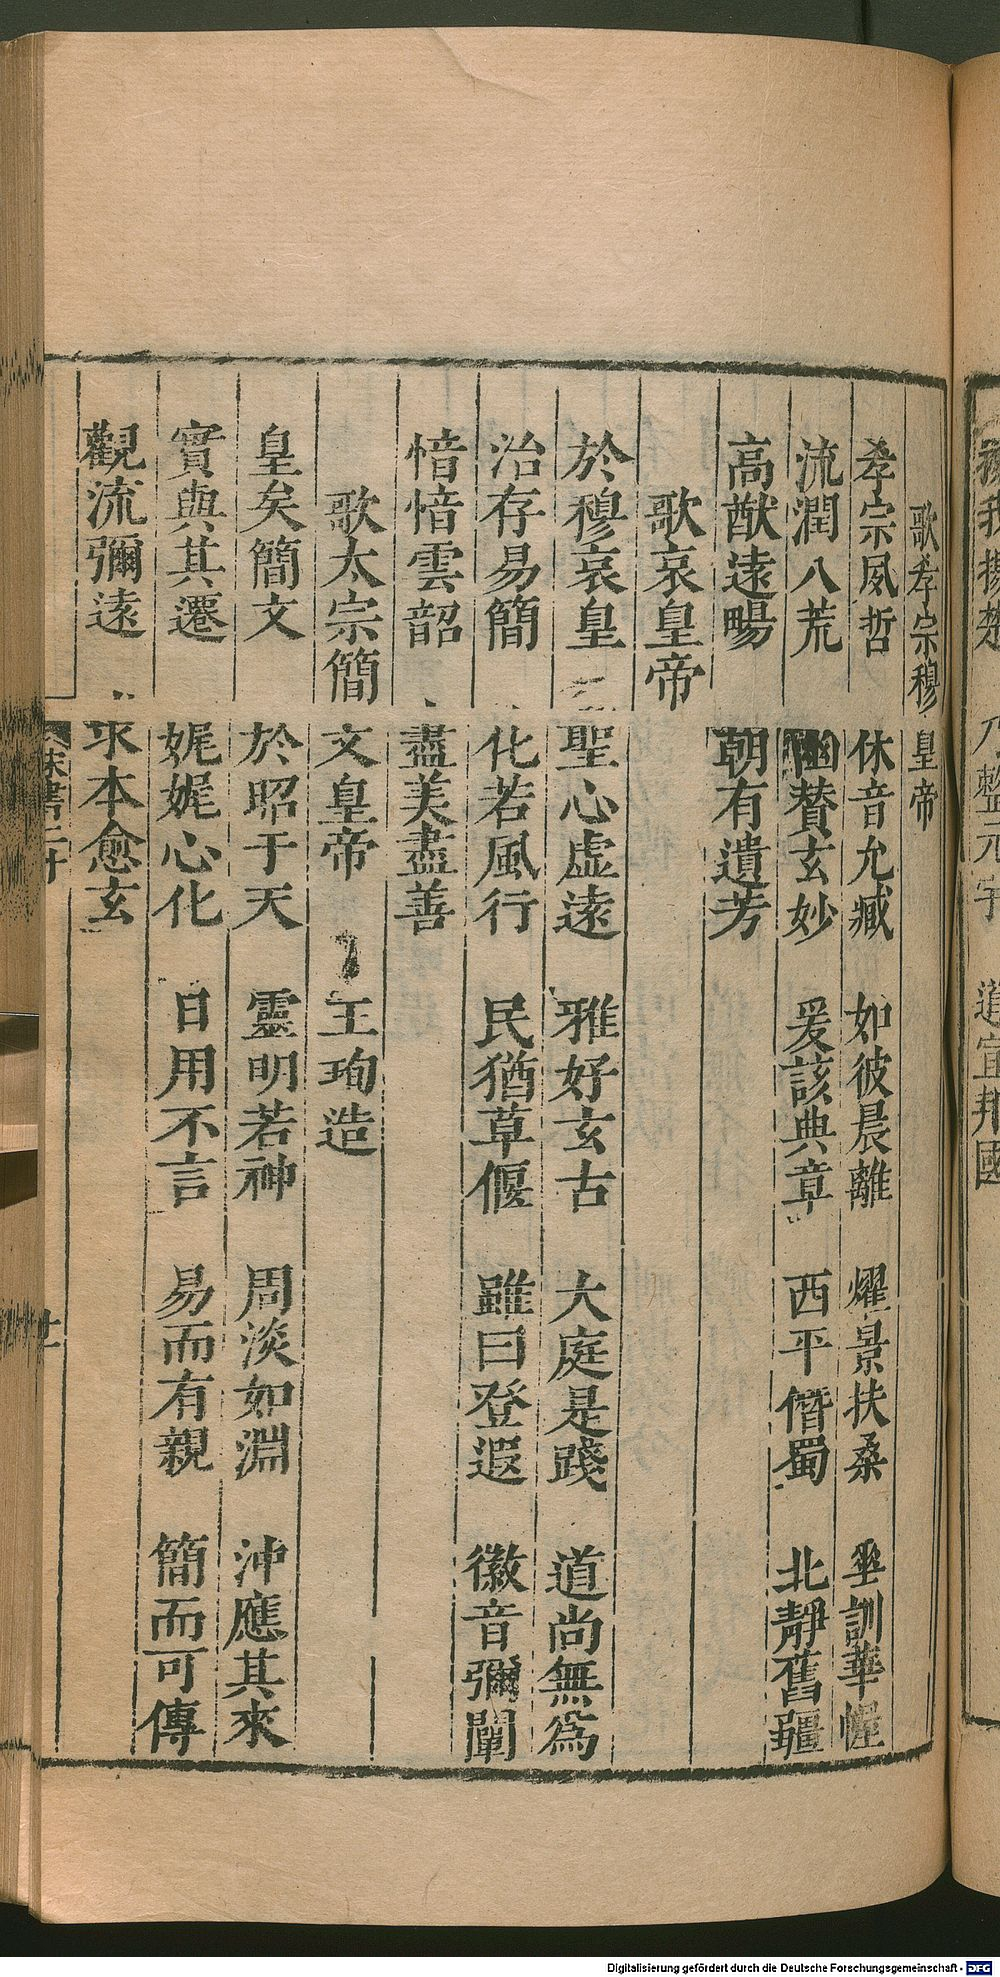 歌孝宗穆皇帝
孝宗夙哲 休音允臧 如彼晨離 燿景扶桑 垂訓華幄
流潤八荒 幽贊玄妙 爰該典章 西平僭蜀 北靜舊疆
高猷遠暢 朝有遺芳
歌哀皇帝
於穆哀皇 聖心虛遠 雅好玄古 大庭是踐 道尚無為
治存易簡 化若風行 民猶草偃 雖曰登遐 徽音彌闡
愔愔雲韶 盡美盡善
歌太宗簡文皇帝 王珣造
皇矣簡文 於昭于天 靈明若神 周淡如淵 沖應其來
實與其遷 娓娓心化 日用不言 易而有親 簡而可傳
觀流彌遠 求本愈玄
道宜邦國
Digitalisierung gefördert durch die Deutsche Forschungsgemeinschaft - DFG